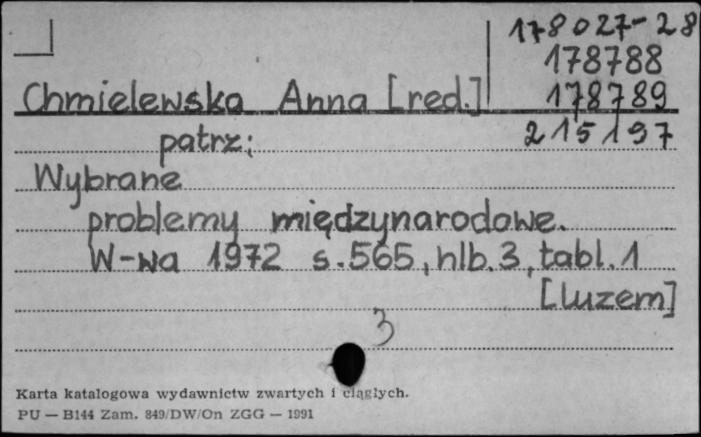 178027-28
178788
Chmielewska Anna [red.] 178789
patrz: 215197
Wybrane
problemy międzynarodowe.
W-wa 1972 s. 565, nlb. 3, tabl. 1
[luzem]
3
Karta katalogowa wydawnictw zwartych i ciągłych.
PU — B144 Zam. 849/DW/On ZGG — 1991